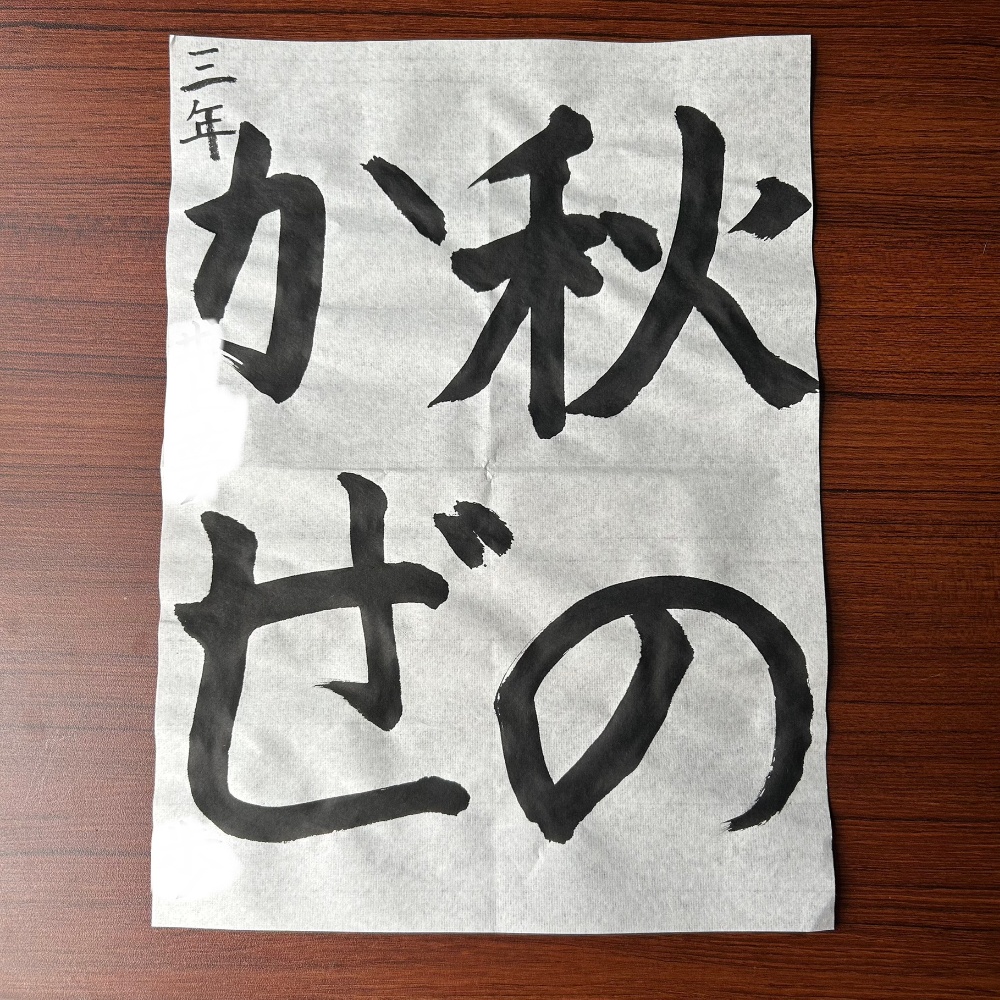 秋の
かぜ
三年